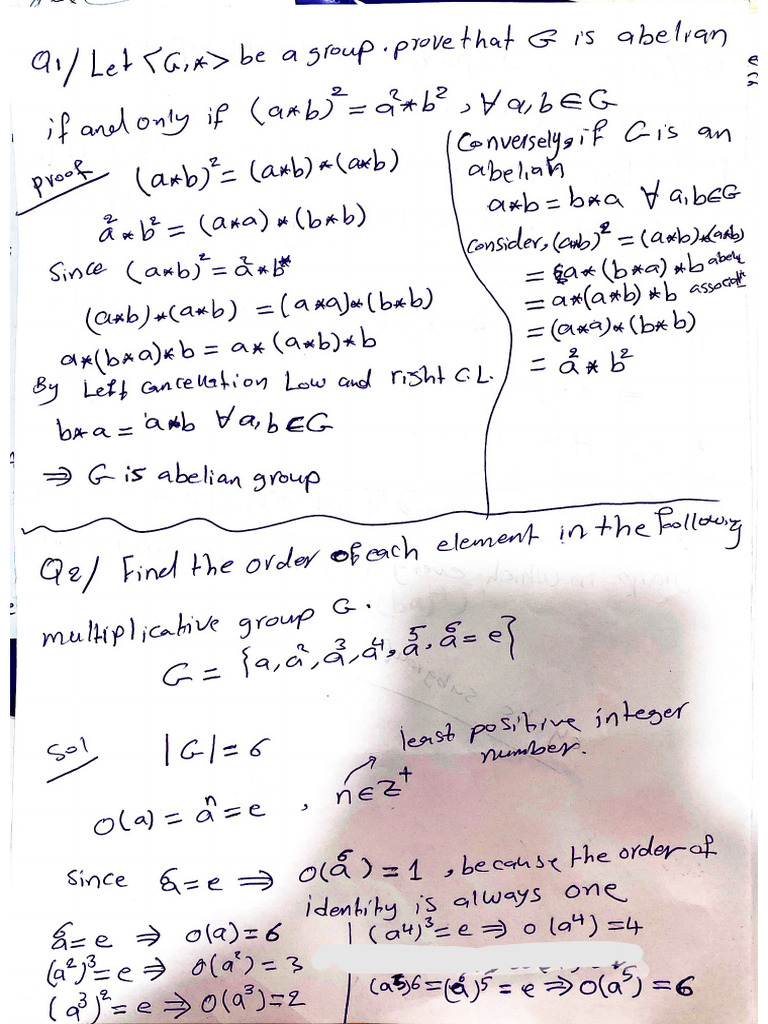 Q1/ Let <G,*> be a group. prove that G is abelian
if and only if (a*b)² = a²*b² , ∀ a,b ∈ G
proof (a*b)² = (a*b) * (a*b)
a² * b² = (a*a) * (b*b)
Since (a*b)² = a² * b*
(a*b)*(a*b) = (a*a)*(b*b)
a*(b*a)*b = a*(a*b)*b
By Left cancellation Low and right C.L.
b*a = a*b ∀ a,b ∈ G
⇒ G is abelian group
Conversely, if G is an
abelian
a*b = b*a ∀ a,b ∈ G
Consider, (a*b)² = (a*b)*(a*b)
= a*(b*a)*b abely
= a*(a*b)*b
= (a*a)*(b*b)
= a² * b²
Q2/ Find the order of each element in the following
multiplicative group G.
G = {a, a², a³, a⁴, a⁵, a⁶ = e}
Sol |G| = 6
least positive integer
number.
O(a) = aⁿ = e , n ∈ Z⁺
Since a⁶ = e ⇒ O(a⁶) = 1 , because the order of
identity is always one
a⁶ = e ⇒ O(a) = 6
(a²)³ = e ⇒ O(a²) = 3
(a³)² = e ⇒ O(a³) = 2
(a⁴)³ = e ⇒ O(a⁴) = 4
(a⁵)⁶ = (a⁶)⁵ = e ⇒ O(a⁵) = 6